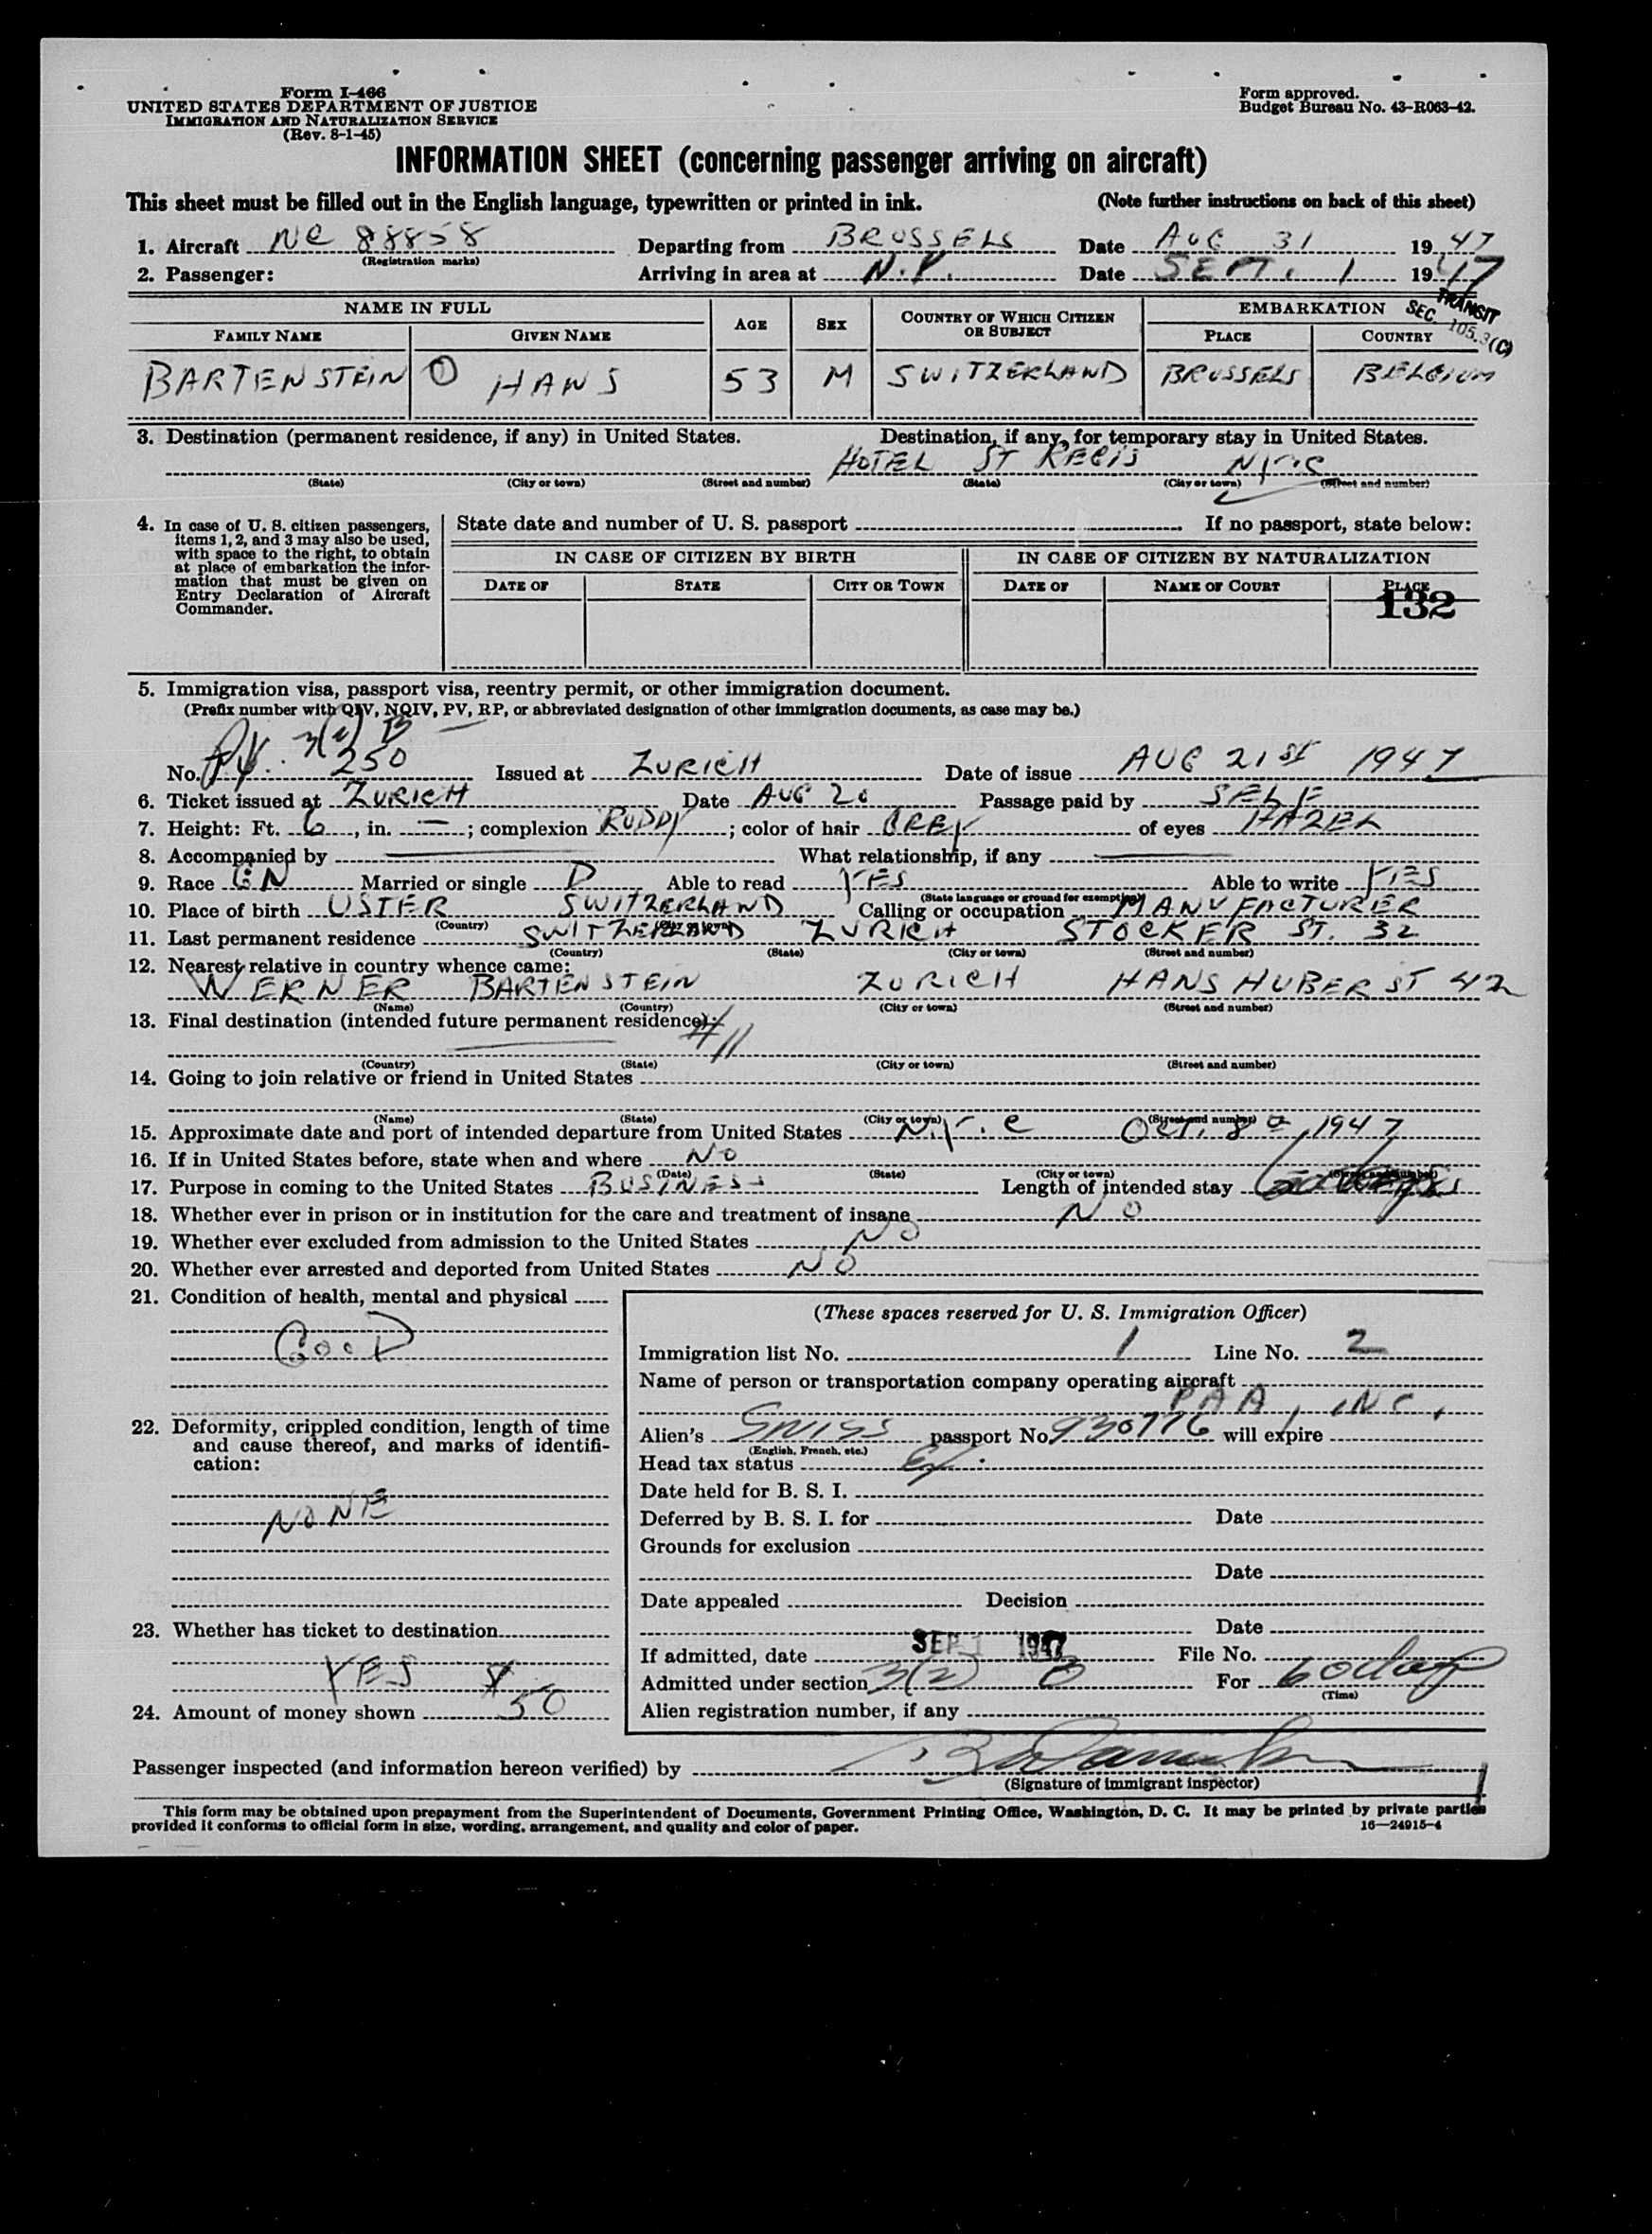 Form I-466
UNITED STATES DEPARTMENT OF JUSTICE
IMMIGRATION AND NATURALIZATION SERVICE
(Rev. 8-1-45)
Form approved.
Budget Bureau No. 43-R063-42.
INFORMATION SHEET (concerning passenger arriving on aircraft)
This sheet must be filled out in the English language, typewritten or printed in ink. (Note further instructions on back of this sheet)
1. Aircraft NC 88858 Departing from BRUSSELS Date AUG 31 1947
(Registration marks)
2. Passenger: Arriving in area at N.Y. Date SEPT. 1 1947
TRANSIT
SEC. 105.3(C)
NAME IN FULL AGE SEX COUNTRY OF WHICH CITIZEN OR SUBJECT EMBARKATION
FAMILY NAME GIVEN NAME PLACE COUNTRY
BARTENSTEIN HANS 53 M SWITZERLAND BRUSSELS BELGIUM
3. Destination (permanent residence, if any) in United States. Destination, if any, for temporary stay in United States.
HOTEL ST REGIS NYC
(State) (City or town) (Street and number) (State) (City or town) (Street and number)
4. In case of U. S. citizen passengers, items 1, 2, and 3 may also be used, with space to the right, to obtain at place of embarkation the information that must be given on Entry Declaration of Aircraft Commander.
State date and number of U. S. passport If no passport, state below:
IN CASE OF CITIZEN BY BIRTH IN CASE OF CITIZEN BY NATURALIZATION
DATE OF STATE CITY OR TOWN DATE OF NAME OF COURT PLACE
132
5. Immigration visa, passport visa, reentry permit, or other immigration document.
(Prefix number with QIV, NQIV, PV, RP, or abbreviated designation of other immigration documents, as case may be.)
3(2) B
No. P.V. 250 Issued at ZURICH Date of issue AUG 21st 1947
6. Ticket issued at ZURICH Date AUG 20 Passage paid by SELF
7. Height: Ft. 6, in. —; complexion RUDDY; color of hair GREY of eyes HAZEL
8. Accompanied by — What relationship, if any —
9. Race GN Married or single D Able to read YES Able to write YES
(State language or ground for exemption)
10. Place of birth USTER SWITZERLAND Calling or occupation MANUFACTURIER
(Country) (City or town)
11. Last permanent residence SWITZERLAND ZURICH STOCKER ST. 32
(Country) (State) (City or town) (Street and number)
12. Nearest relative in country whence came:
WERNER BARTENSTEIN ZURICH HANS HUBER ST 42
(Name) (Country) (City or town) (Street and number)
13. Final destination (intended future permanent residence):
(Country) (State) (City or town) (Street and number)
14. Going to join relative or friend in United States
(Name) (State) (City or town) (Street and number)
15. Approximate date and port of intended departure from United States N.Y.C OCT. 8 1947
16. If in United States before, state when and where NO
(Date) (State) (City or town) (Street and number)
17. Purpose in coming to the United States BUSINESS Length of intended stay
18. Whether ever in prison or in institution for the care and treatment of insane NO
19. Whether ever excluded from admission to the United States NO
20. Whether ever arrested and deported from United States NO
21. Condition of health, mental and physical
GOOD
22. Deformity, crippled condition, length of time and cause thereof, and marks of identification:
NONE
23. Whether has ticket to destination
YES
24. Amount of money shown $50
(These spaces reserved for U. S. Immigration Officer)
Immigration list No. 1 Line No. 2
Name of person or transportation company operating aircraft
PAA, INC.
Alien's SWISS passport No. 930776 will expire
(English, French, etc.)
Head tax status Ex.
Date held for B. S. I.
Deferred by B. S. I. for Date
Grounds for exclusion
Date
Date appealed Decision
Date
If admitted, date SEP 1 1947 File No.
Admitted under section 3(2) B For 60 days
(Time)
Alien registration number, if any
Passenger inspected (and information hereon verified) by
(Signature of immigrant inspector)
This form may be obtained upon prepayment from the Superintendent of Documents, Government Printing Office, Washington, D. C. It may be printed by private parties
provided it conforms to official form in size, wording, arrangement, and quality and color of paper. 16—24915-4